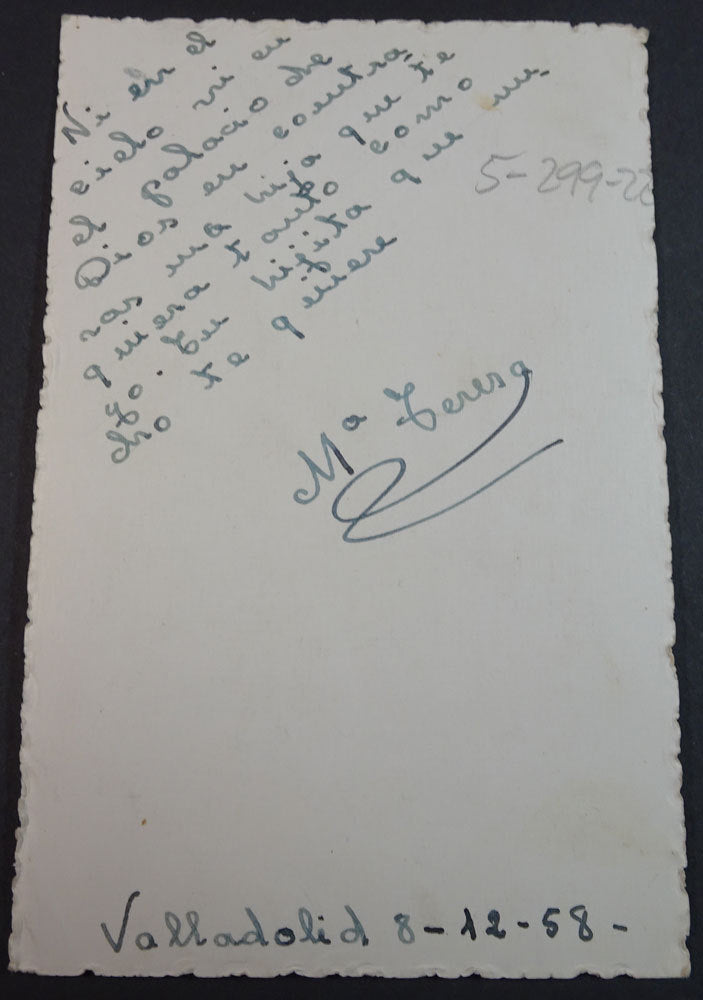 Ni en el
cielo ni en
el palacio de
Dios encontra
ras una hija que te
quiera tanto como
yo. Tu hijita que mu
cho te quiere
Mª Teresa
5-299-22
Valladolid 8-12-58-